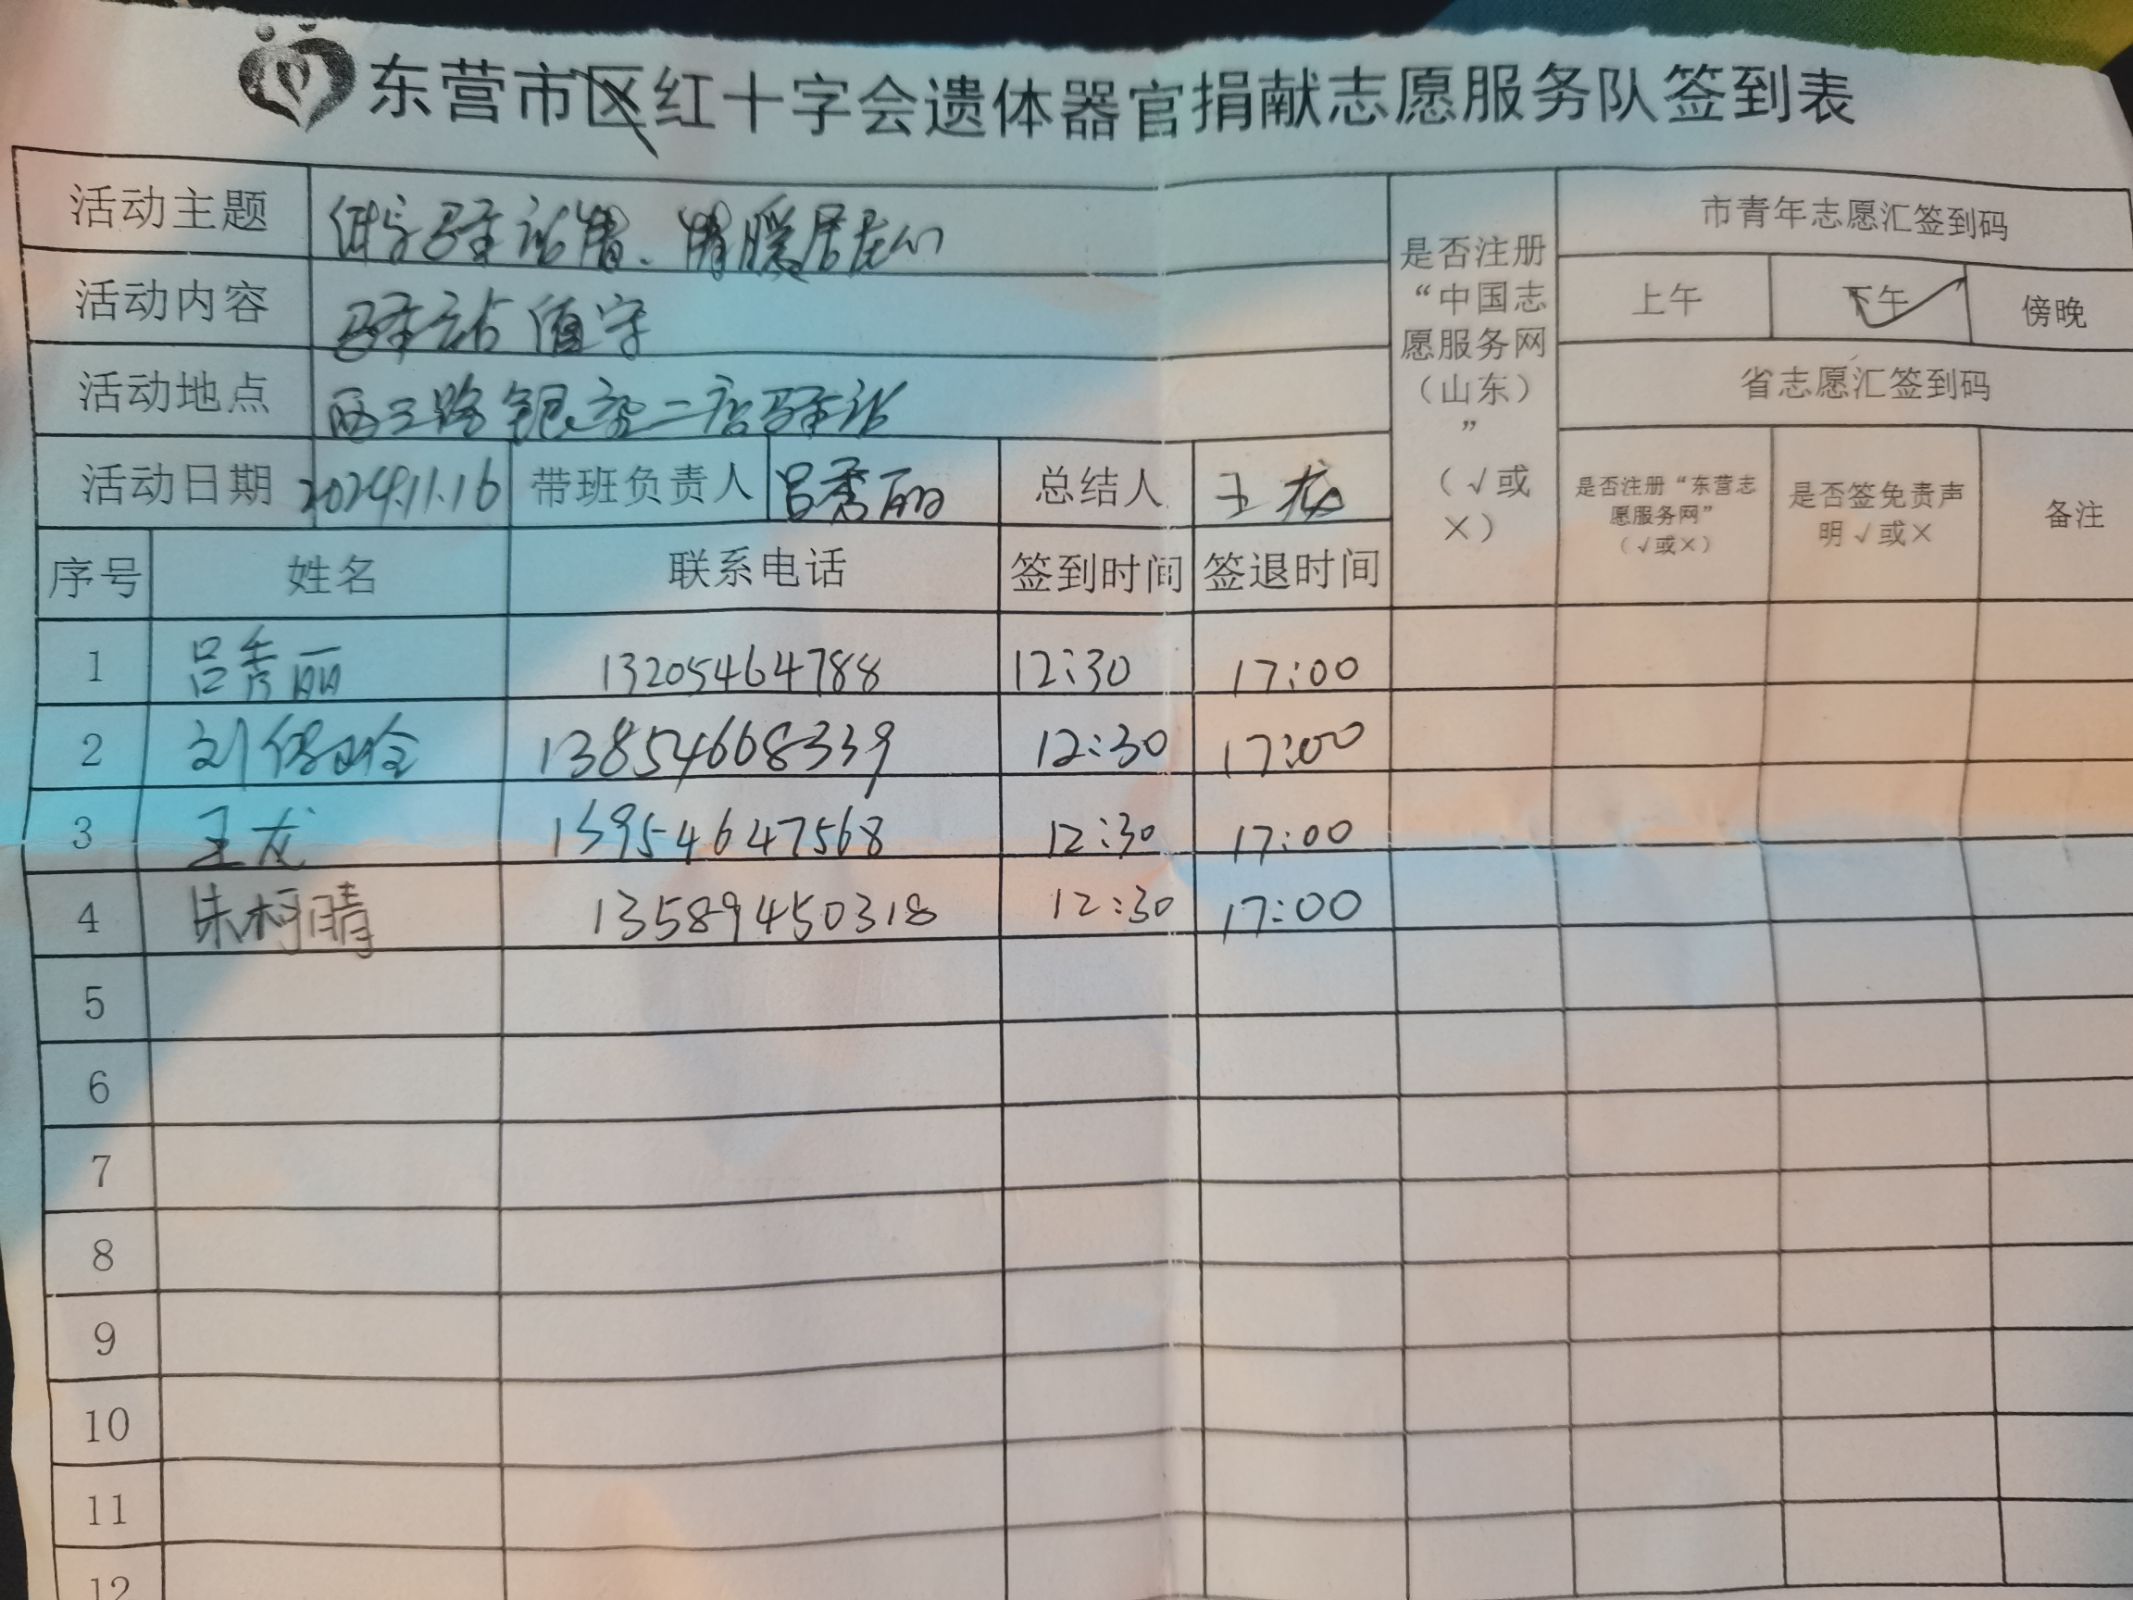 东营市区红十字会遗体器官捐献志愿服务队签到表
活动主题
情暖居民心
活动内容 驿站值守
活动地点 西三路银座二店驿站
活动日期 2024.11.16 带班负责人 吕秀丽 总结人 王龙
是否注册
“中国志
愿服务网
（山东）
”
（√或
×）
市青年志愿汇签到码
上午 下午 傍晚
省志愿汇签到码
是否注册“东营志
愿服务网”
（√或×）
是否签免责声
明√或×
备注
序号 姓名 联系电话 签到时间 签退时间
1 吕秀丽 13205464788 12:30 17:00
2 刘 13854668339 12:30 17:00
3 王龙 13954647568 12:30 17:00
4 朱柯晴 13589450318 12:30 17:00
5
6
7
8
9
10
11
12